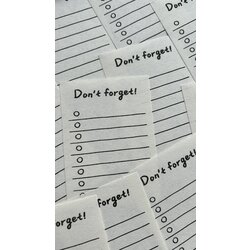 Don't forget!
Don't forget!
Don't forget!
Don't forget!
forget!
forget!